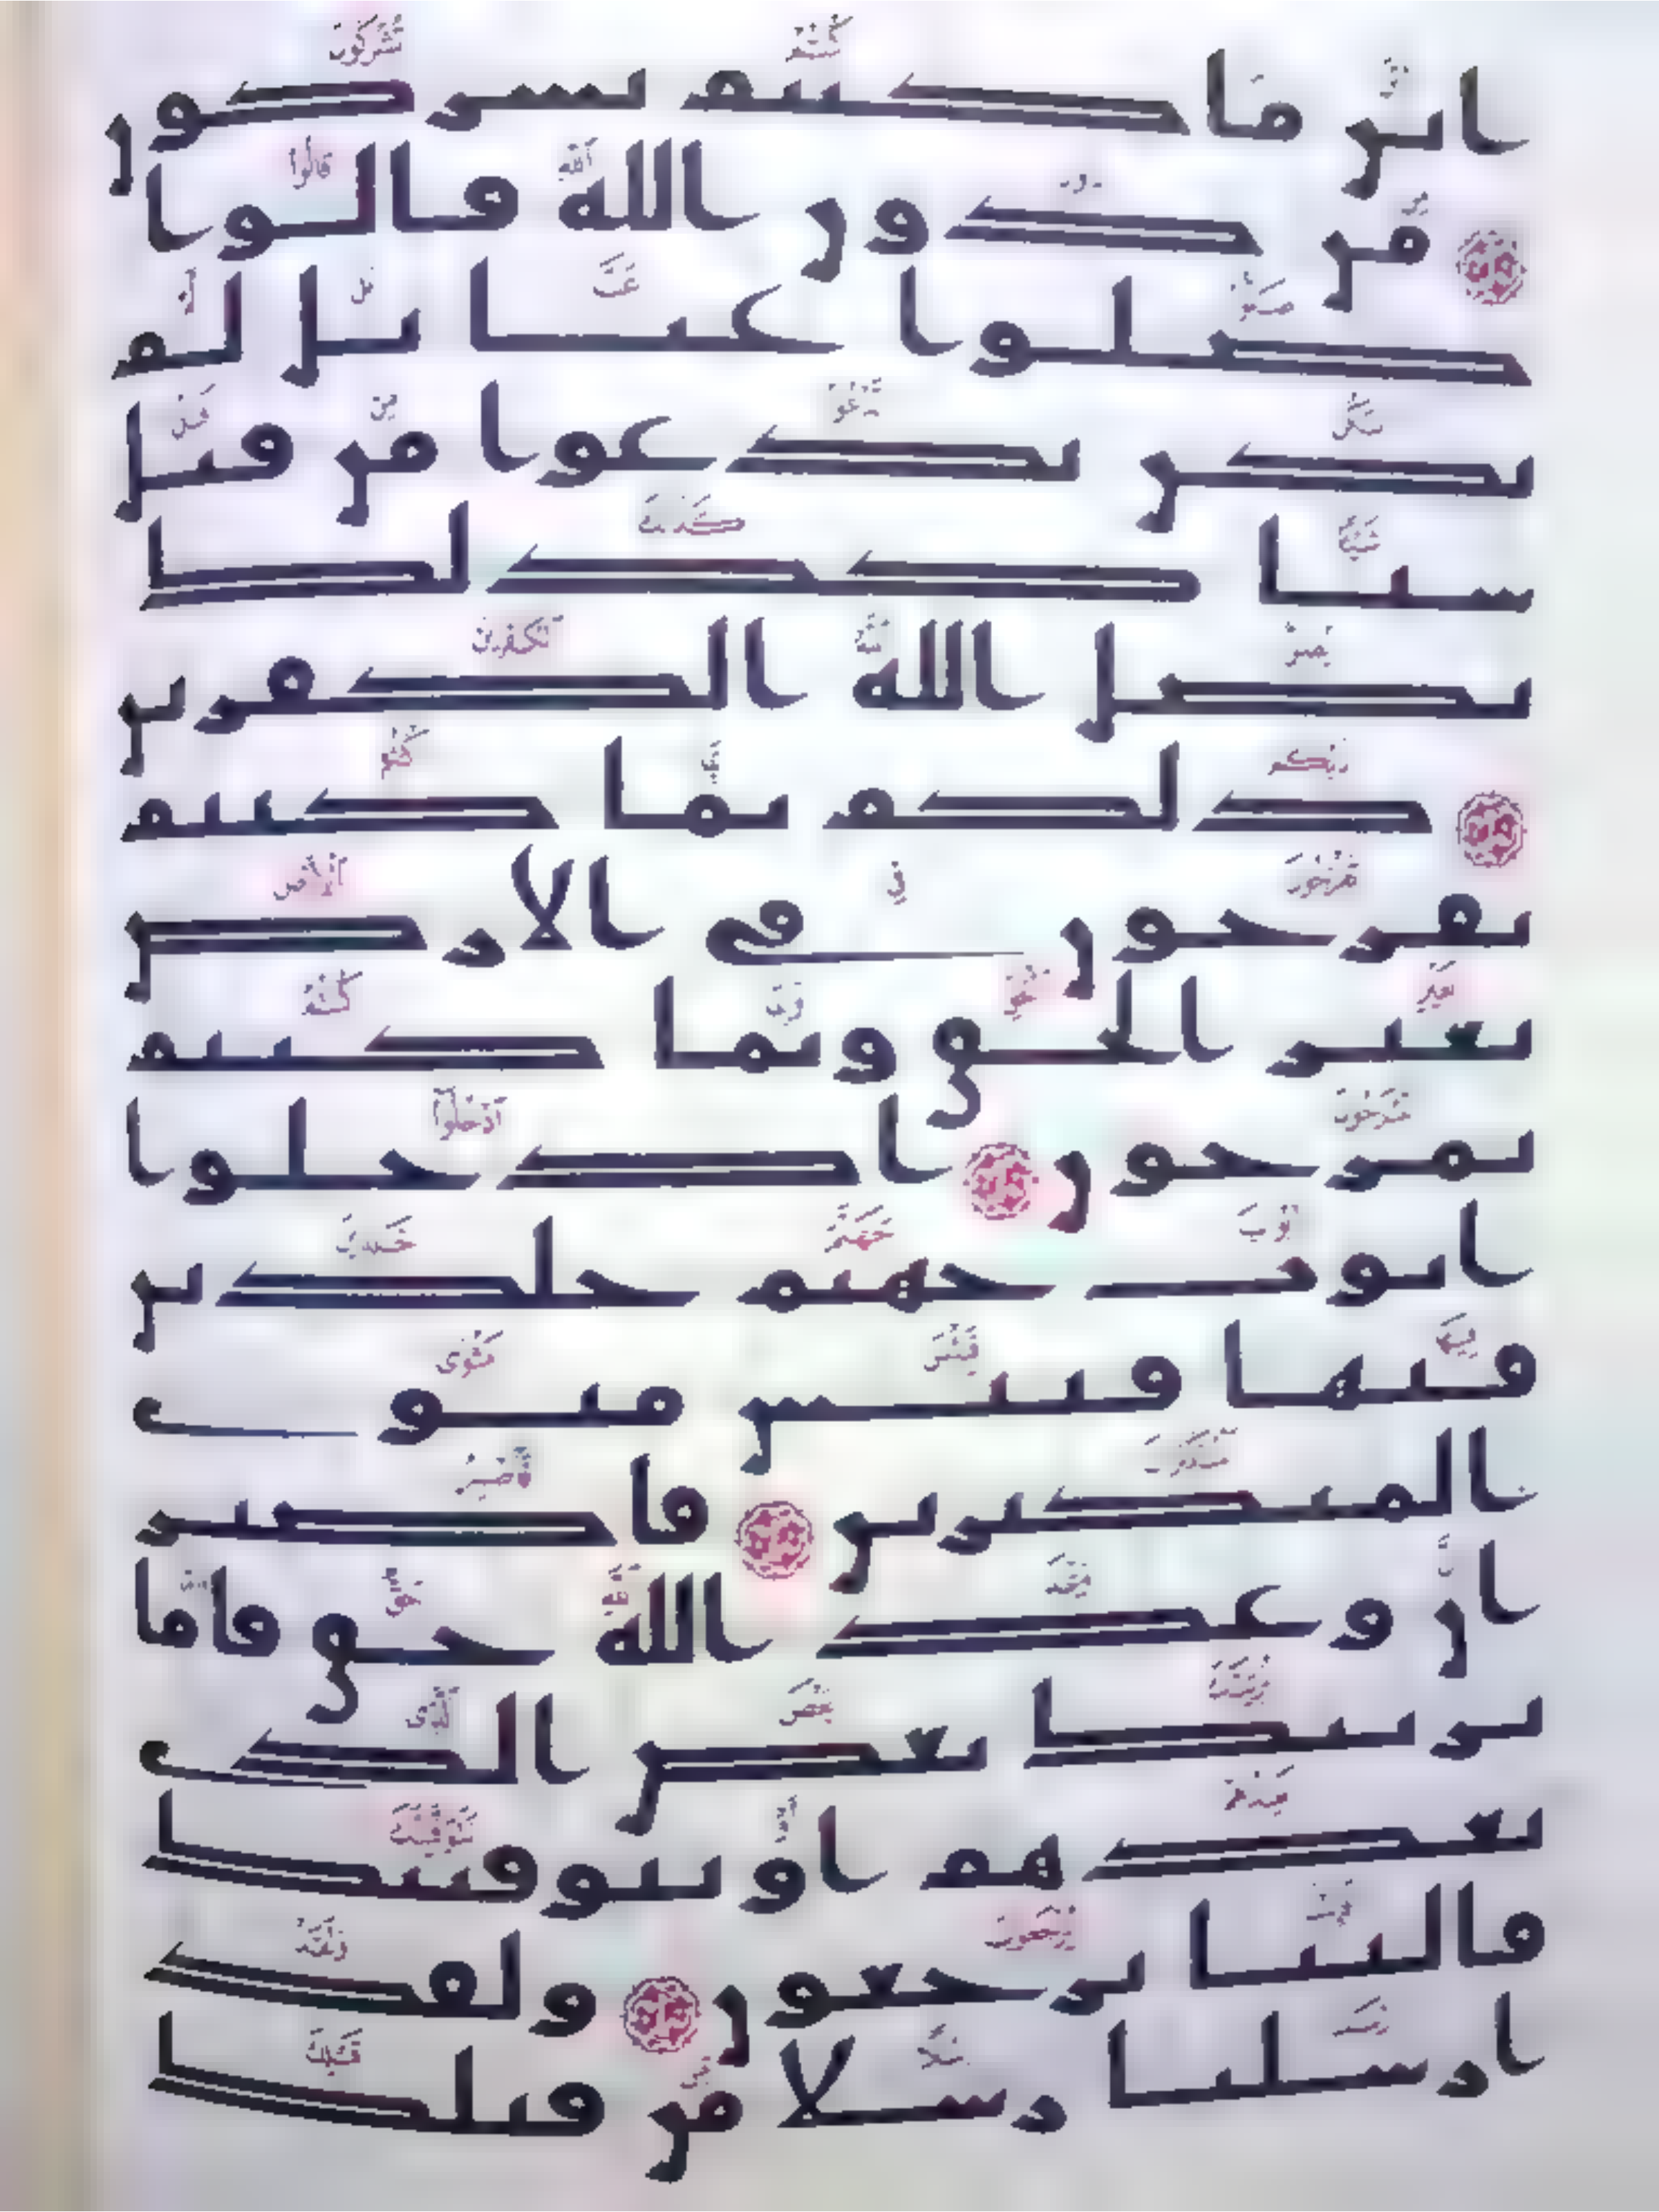 اين ما كنتم تشركون
من دون الله قالوا
ضلوا عنا بل لم
نكن ندعوا من قبل
شيئا كذلك
يضل الله الكفرين
ذلكم بما كنتم
تفرحون في الارض
بغير الحق وبما كنتم
تمرحون ادخلوا
ابوب جهنم خلدين
فيها فبئس مثوى
المتكبرين فاصبر
ان وعد الله حق فاما
نرينك بعض الذي
نعدهم او نتوفينك
فالينا يرجعون ولقد
ارسلنا رسلا من قبلك